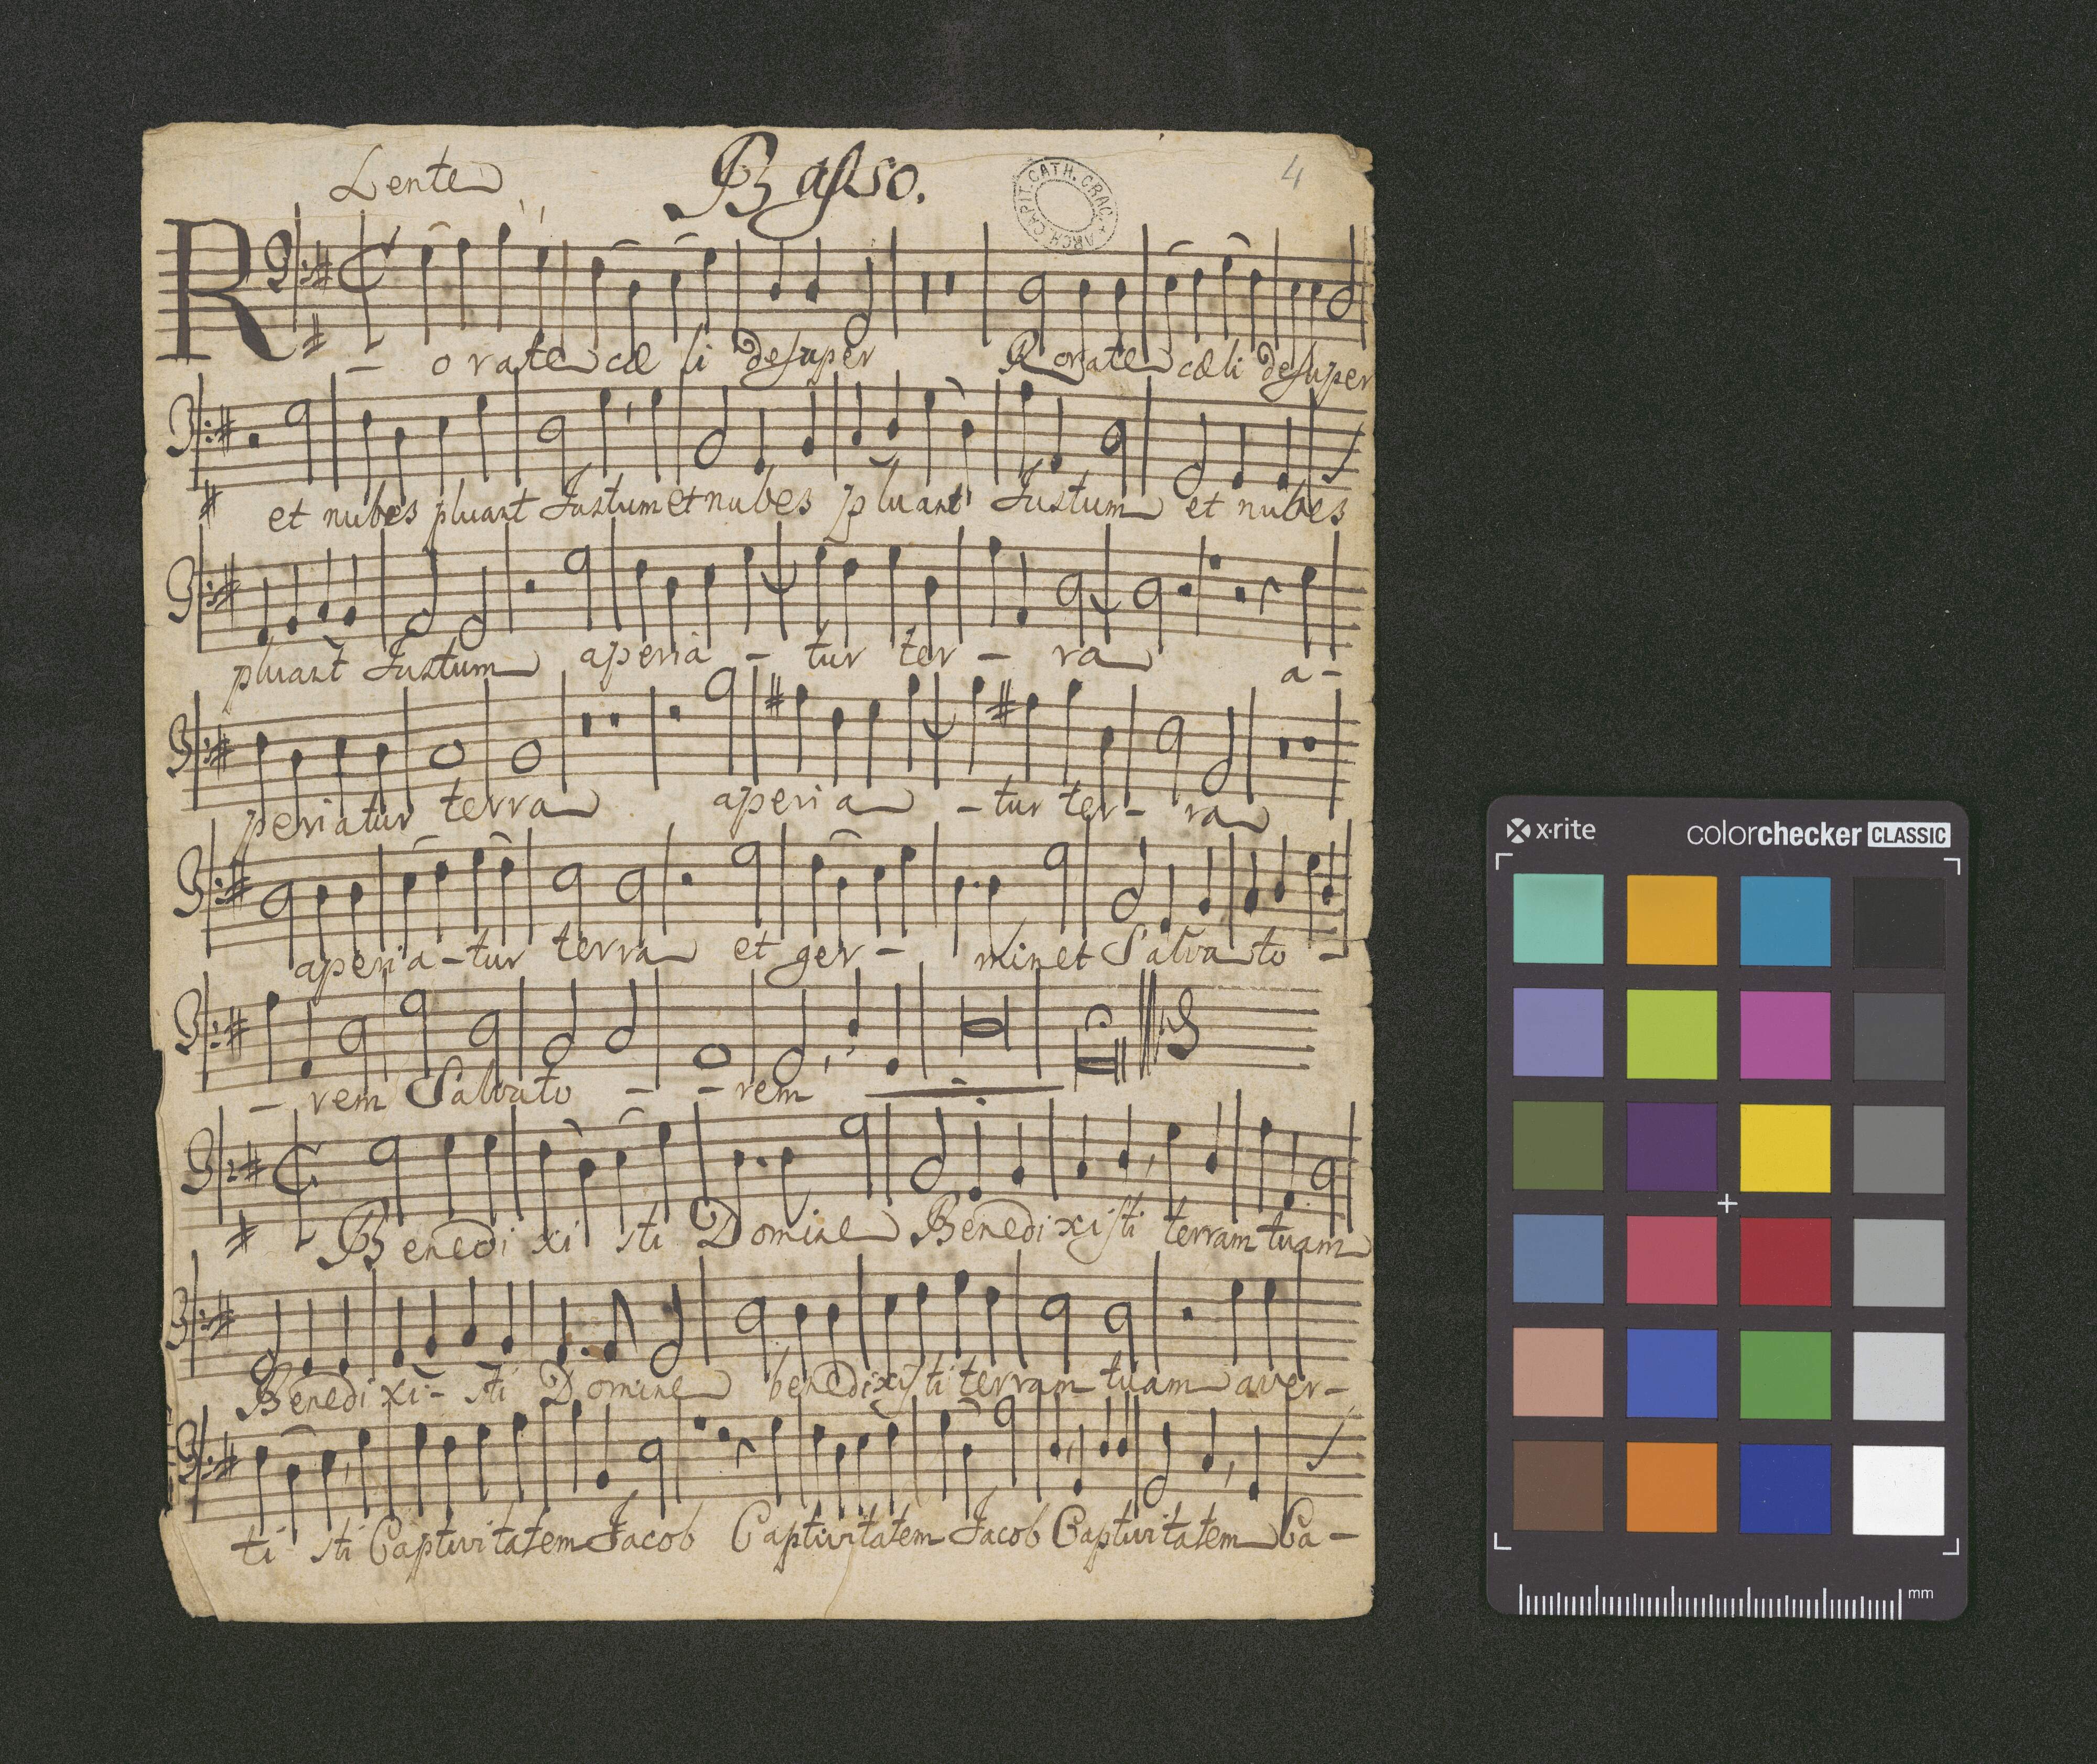 Lente Basso. 4
ARCH. CAPIT. CATH. CRAC.
R - orate cæli desuper Rorate cæli desuper
et nubes pluant Justum et nubes pluant Justum et nubes
pluant Justum aperia - tur ter - ra a -
periatur terra aperia - tur ter - ra
aperia - tur terra et ger - minet Salvato -
- rem Salvato - - rem
Benedixisti Domine Benedixisti terram tuam
Benedixi - sti Domine benedixisti terram tuam aver -
tisti Captivitatem Jacob Captivitatem Jacob Captivitatem Ca -
x·rite colorchecker CLASSIC
mm